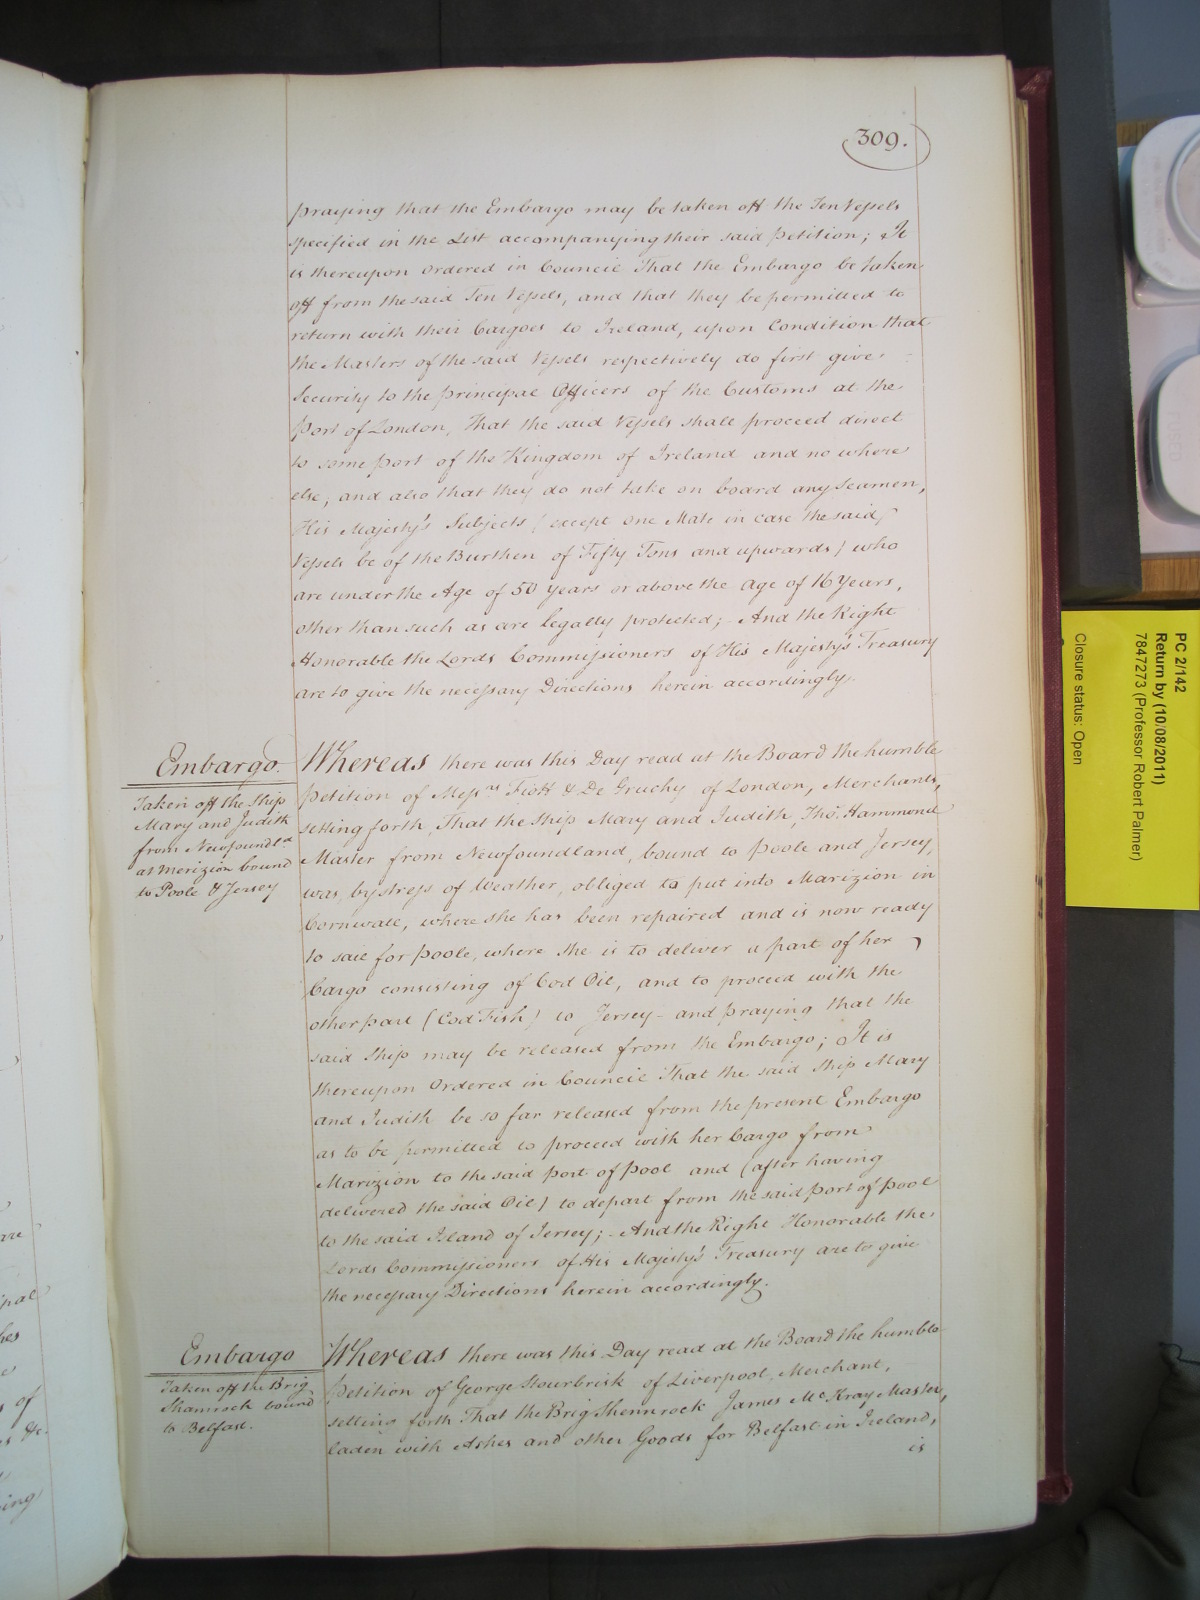 309.
praying that the Embargo may be taken off the Ten Vessels
specified in the List accompanying their said Petition; It
is thereupon ordered in Council That the Embargo be taken
off from the said Ten Vessels, and that they be permitted to
return with their Cargoes to Ireland, upon Condition that
the Masters of the said Vessels respectively do first give
Security to the principal Officers of the Customs at the
Port of London, That the said Vessels shall proceed direct
to some Port of the Kingdom of Ireland and no where
else; and also that they do not take on board any Seamen,
His Majesty's Subjects (except one Mate in case the said
Vessels be of the Burthen of Fifty Tons and upwards) who
are under the Age of 50 years or above the age of 16 Years,
other than such as are legally protected; - And the Right
Honorable the Lords Commissioners of His Majesty's Treasury
are to give the necessary Directions herein accordingly.
Embargo.
Taken off the Ship
Mary and Judith
from Newfoundld
at Merizion bound
to Poole & Jersey
Whereas there was this Day read at the Board the humble
Petition of Messrs Fiott & De Gruchy of London, Merchants,
setting forth, That the Ship Mary and Judith, Thos. Hammond
Master from Newfoundland, bound to Poole and Jersey,
was, by stress of Weather, obliged to put into Marizion in
Cornwall, where she has been repaired and is now ready
to sail for Poole, where she is to deliver a part of her
Cargo consisting of Cod Oil, and to proceed with the
other part (Cod Fish) to Jersey - and praying that the
said Ship may be released from the Embargo; It is
thereupon Ordered in Council That the said Ship Mary
and Judith be so far released from the present Embargo
as to be permitted to proceed with her Cargo from
Marizion to the said Port of Pool and (after having
delivered the said Oil) to depart from the said Port of Pool
to the said Island of Jersey; - And the Right Honorable the
Lords Commissioners of His Majesty's Treasury are to give
the necessary Directions herein accordingly.
Embargo
Taken off the Brig
Shamrock bound
to Belfast.
Whereas there was this Day read at the Board the humble
Petition of George Stourbrisk of Liverpool, Merchant,
setting forth That the Brig Shemrock James McKray Master,
laden with Ashes and other Goods for Belfast in Ireland,
is
are
of
&c.
PC 2/142
Return by (10/08/2011)
7847273 (Professor Robert Palmer)
Closure status: Open